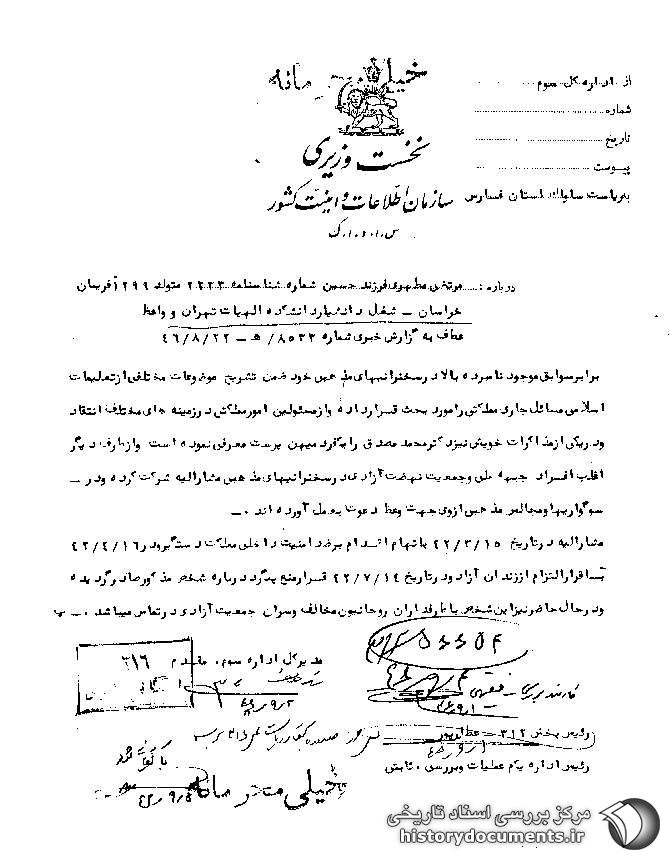 خیلی محرمانه
از اداره کل سوم
شماره
تاریخ
پیوست
نخست وزیری
سازمان اطلاعات و امنیت کشور
س.ا.و.ا.ک
بریاست ساواک استان فارس
درباره : مرتضی مطهری فرزند حسین شماره شناسنامه ۲۲۳۳ متولد ۱۲۹۹ فریمان
خراسان – شغل دانشیار دانشکده الهیات تهران و واعظ
عطف به گزارش خبری شماره ۸۵۳۳/ه – ۴۶/۸/۲۲
برابر سوابق موجود نامبرده بالا در سخنرانیهای مذهبی خود ضمن تشریح موضوعات مختلفی از تعلیمات
اسلامی مسائل جاری مملکتی را مورد بحث قرار داده و از مسئولین امور مملکتی در زمینه های مختلف انتقاد
و در یکی از مذاکرات خویش نیز دکتر محمد مصدق را یکفرد میهن پرست معرفی نموده است و از طرف دیگر
اغلب افراد جبهه ملی و جمعیت نهضت آزادی در سخنرانیهای مذهبی مشارالیه شرکت کرده و در –
سوگواریها و مجالس مذهبی از وی جهت وعظ دعوت بعمل آورده اند .–
مشارالیه در تاریخ ۴۲/۳/۱۵ باتهام اقدام بر ضد امنیت داخلی مملکت دستگیر و در ۴۲/۴/۱۶
با قرار التزام از زندان آزاد و در تاریخ ۴۲/۷/۱۴ قرار منع پیگرد درباره شخص مذکور صادر گردیده
و در حال حاضر نیز این شخص با طرفداران روحانیون مخالف و سران جمعیت آزادی در تماس میباشد .–
مدیر کل اداره سوم. مقدم
۳۱۶
کارمند بررسی – فقیهی
رئیس بخش ۳۱۲ – عطارپور
رئیس اداره یکم عملیات و بررسی . ثابتی
خیلی محرمانه
مرکز بررسی اسناد تاریخی
historydocuments.ir